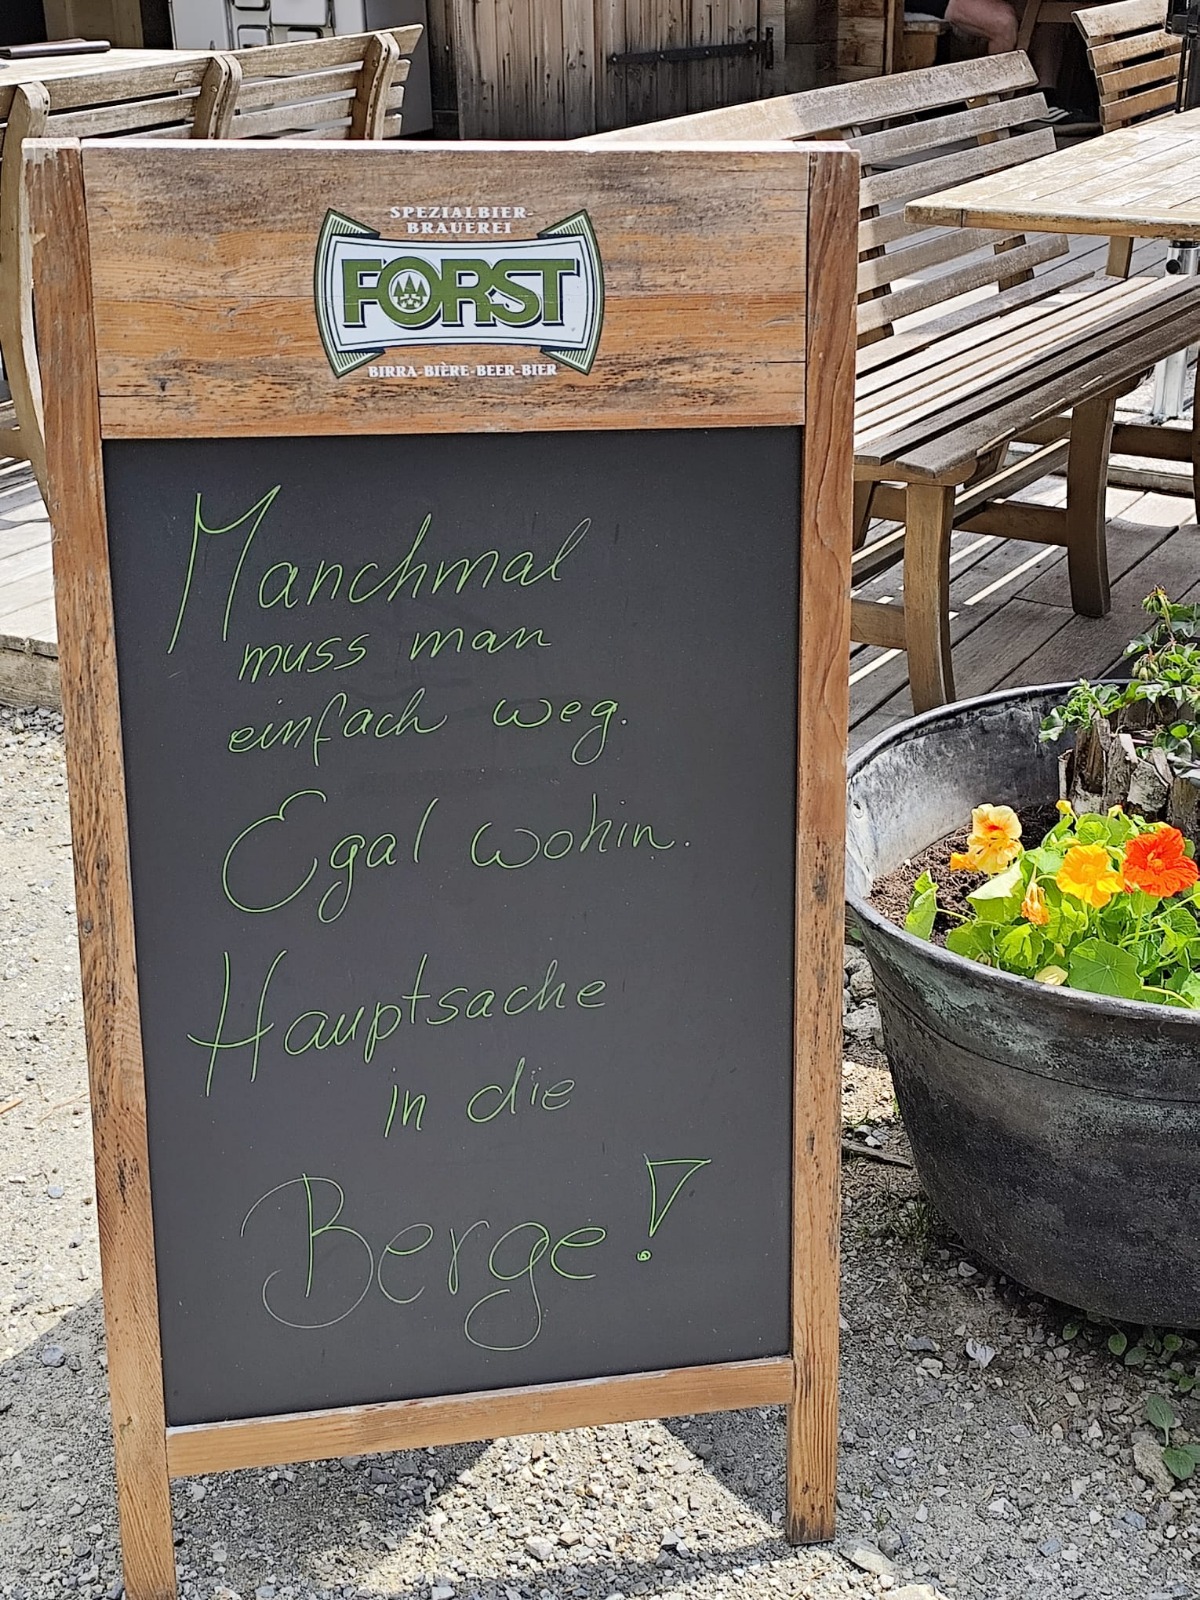 SPEZIALBIER-
BRAUEREI
FORST
BIRRA-BIÈRE-BEER-BIER
Manchmal
muss man
einfach weg.
Egal wohin.
Hauptsache
in die
Berge!